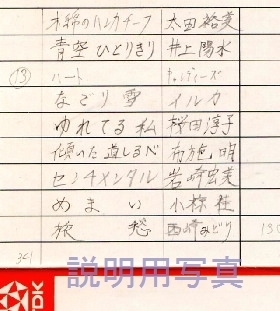 木綿のハンカチーフ 太田裕美
青空ひとりきり 井上陽水
⑬ ハート キャンディーズ
なごり雪 イルカ
ゆれてる私 桜田淳子
傾いた道しるべ 布施明
センチメンタル 岩崎宏美
めまい 小椋佳
旅愁 西崎みどり 130
341
説明用写真
TDK